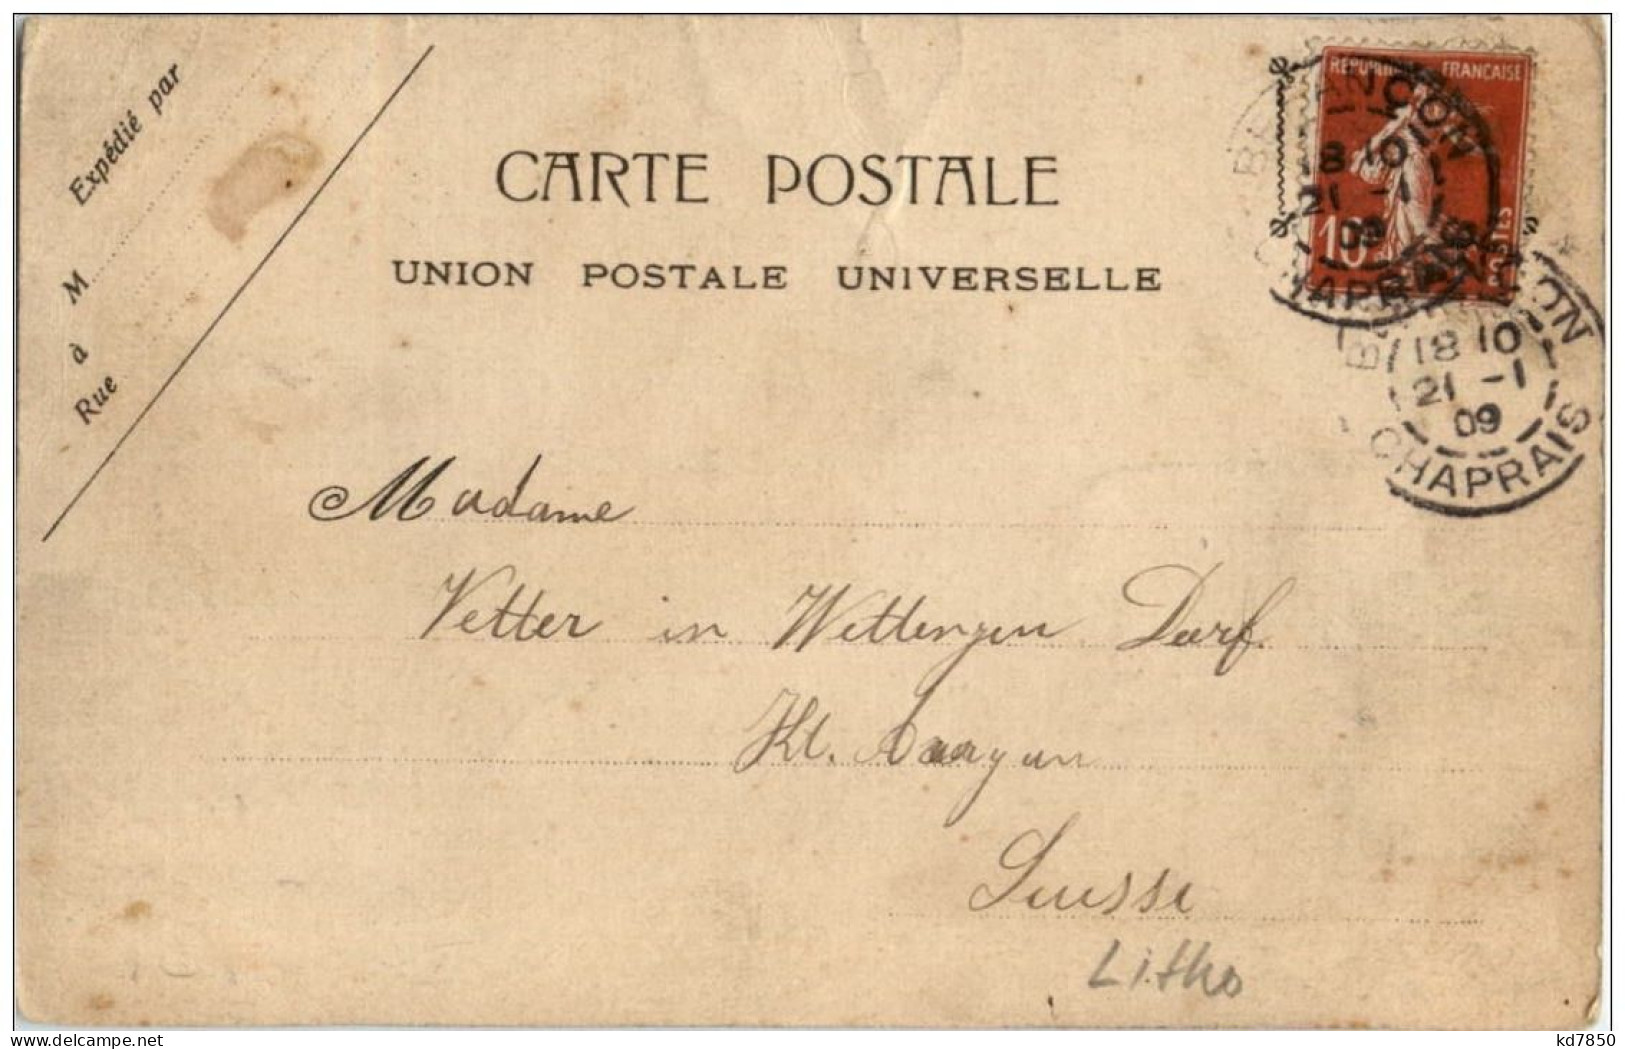 Expédié par
M
à
Rue
CARTE POSTALE
UNION POSTALE UNIVERSELLE
REPUBLIQUE FRANCAISE
10
POSTES
BESANCON
18 10
21 -1
09
CHAPRAIS
BESANCON
18 10
21 -1
09
CHAPRAIS
Madame
Vetter in Wettengen Dorf.
Kt. Aargau
Suisse
Litho
delcampe.net
kd7850